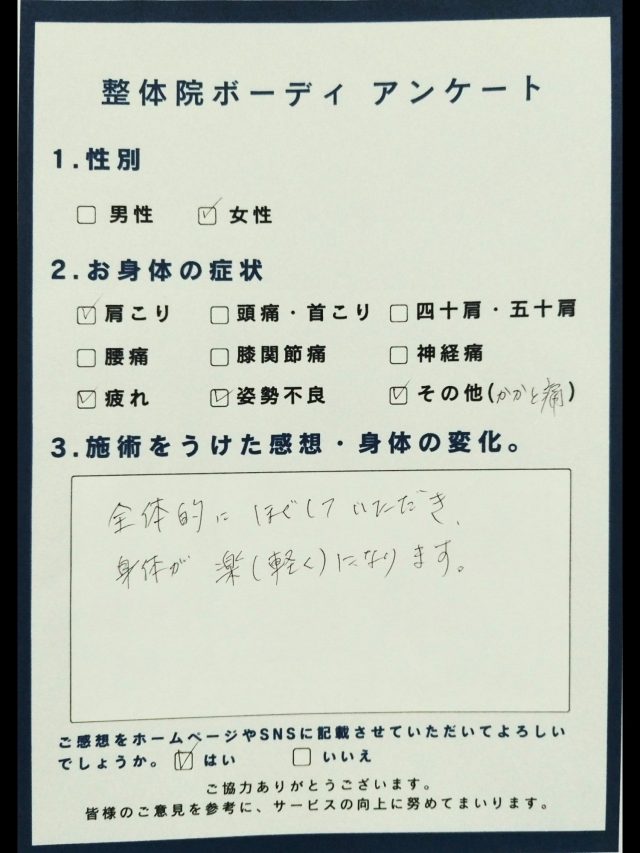 整体院ボーディ アンケート
1.性別
□ 男性 ☑ 女性
2.お身体の症状
☑ 肩こり □ 頭痛・首こり □ 四十肩・五十肩
□ 腰痛 □ 膝関節痛 □ 神経痛
☑ 疲れ ☑ 姿勢不良 ☑ その他(かかと痛)
3.施術をうけた感想・身体の変化。
全体的にほぐしていただき、
身体が楽(軽く)になります。
ご感想をホームページやSNSに記載させていただいてよろしい
でしょうか。 ☑ はい □ いいえ
ご協力ありがとうございます。
皆様のご意見を参考に、サービスの向上に努めてまいります。